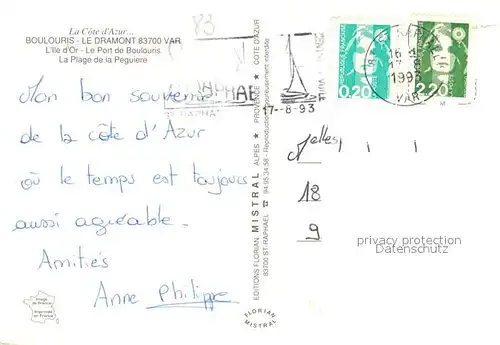 La Côte d'Azur...
BOULOURIS - LE DRAMONT 83700 VAR
L'Ile d'Or - Le Port de Boulouris
La Plage de la Peguiere
83
Mon bon souvenir
de la côte d'Azur
où le temps est toujours
aussi agréable.
Amitiés
Anne Philippe
Image de France
Imprimée en France
EDITIONS FLORIAN MISTRAL ALPES PROVENCE COTE D'AZUR
83700 ST RAPHAEL 94.95.34.58 - Reproduction rigoureusement interdite
FLORIAN MISTRAL
17-8-93
RÉPUBLIQUE FRANÇAISE
0,20
2,20
16
17-8
1993
VAR
Melles
18
9
privacy protection
Datenschutz